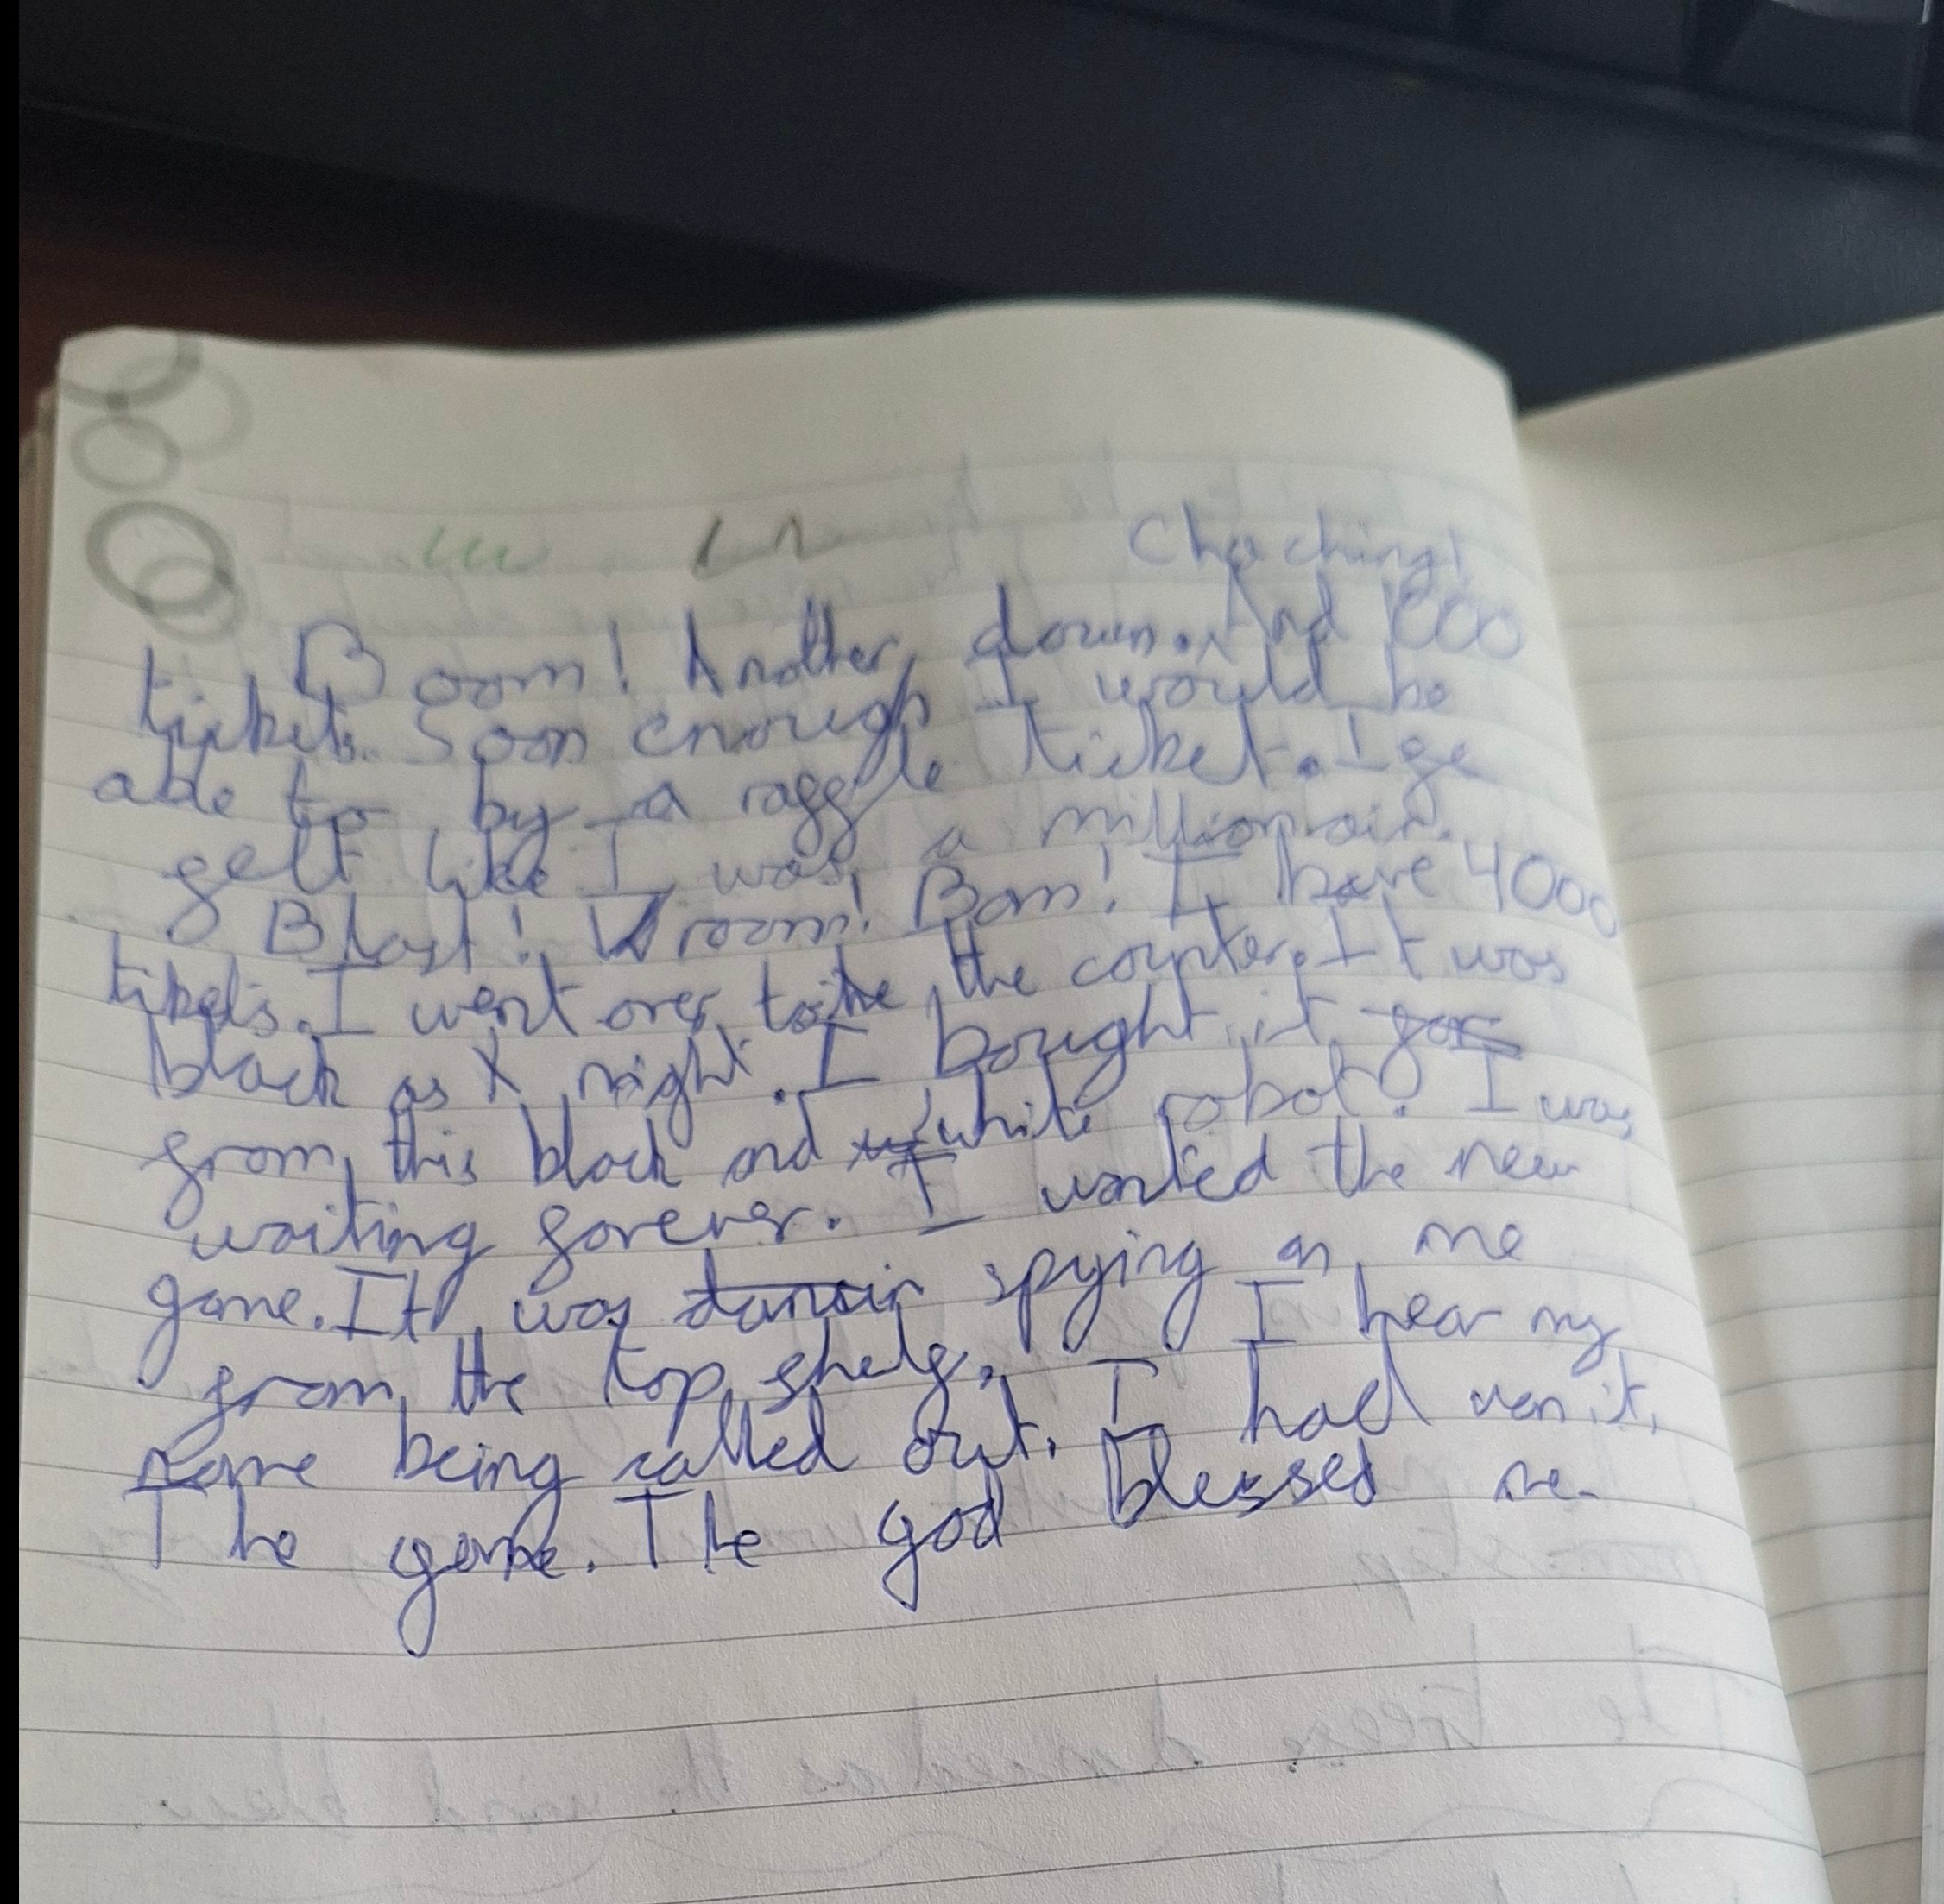 Cha ching!
Boom! Another down. And 1000
tickets. Soon enough I would be
able to by a raffle ticket. I fe
felt like I was a millionair.
Blast! Vroom! Bam! I have 4000
tikets. I went over to the the counter. It was
black as night. I bought it for
from this black and white robot! I was
waiting forever. I wanted the new
game. It was spying on me
from the top shelf. I hear my
name being called out. I had won it,
The game. The god blessed me.